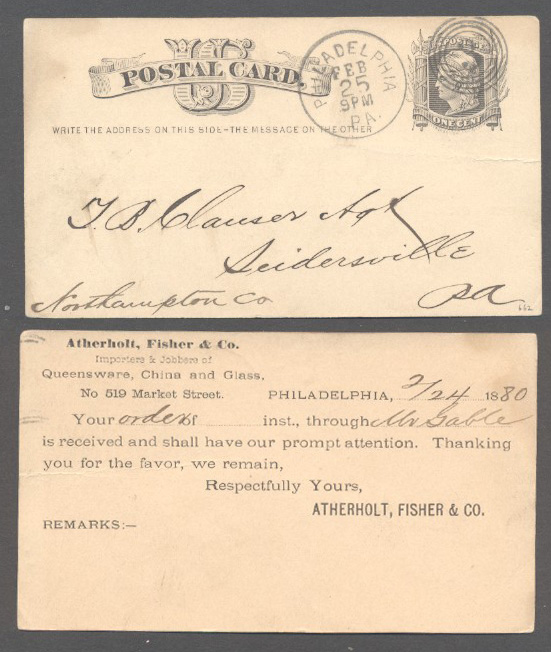 US
POSTAL CARD.
PHILADELPHIA
FEB
25
9PM
PA.
POSTAGE
ONE CENT
WRITE THE ADDRESS ON THIS SIDE-THE MESSAGE ON THE OTHER
T. B. Clauser Agt
Seidersville
Northampton Co
Pa
Atherholt, Fisher & Co.
Importers & Jobbers of
Queensware, China and Glass,
No 519 Market Street.
PHILADELPHIA, 2/24 1880
Your order of inst., through Mr Gable
is received and shall have our prompt attention. Thanking
you for the favor, we remain,
Respectfully Yours,
ATHERHOLT, FISHER & CO.
REMARKS:—